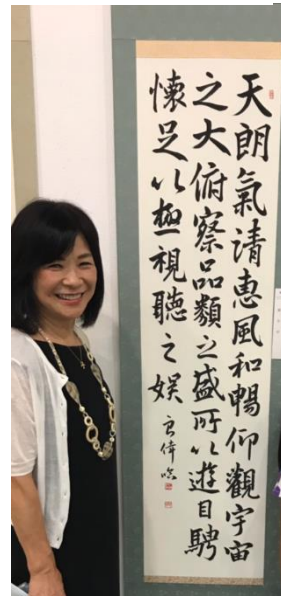 天朗氣清惠風和暢仰觀宇宙
之大俯察品類之盛所以遊目騁
懷足以極視聽之娛